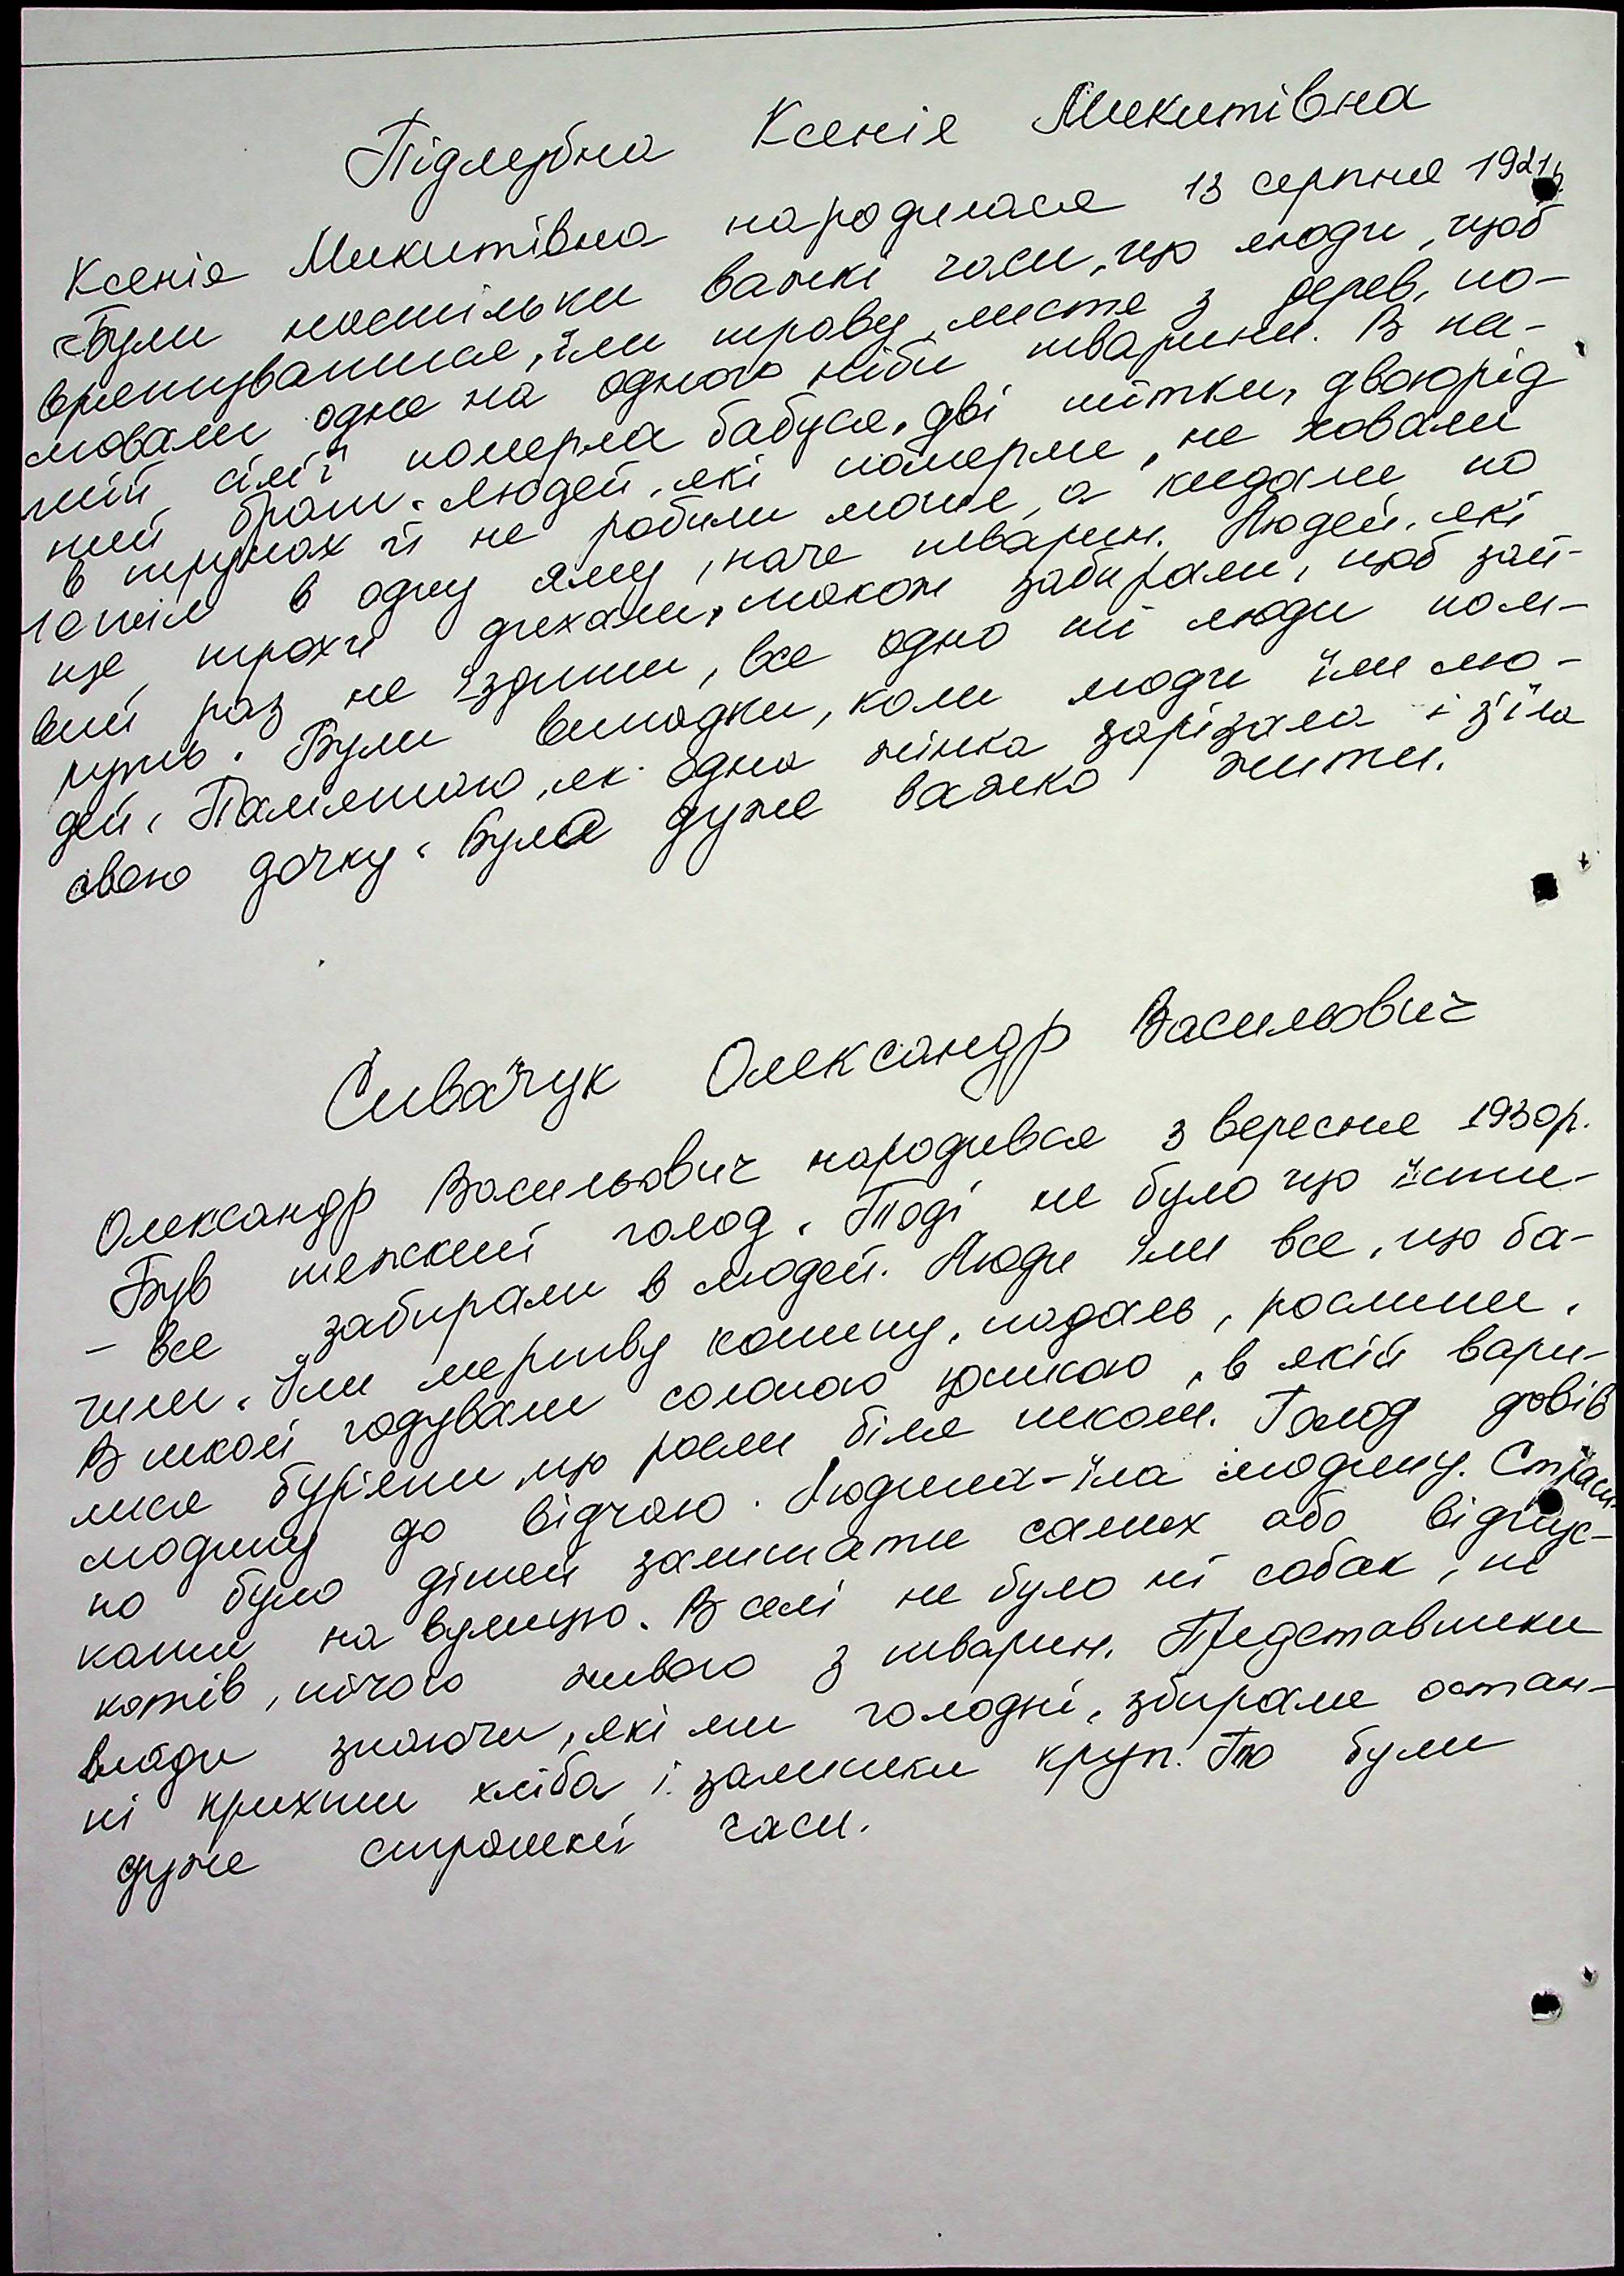 Підлубна Ксенія Микитівна
Ксенія Микитівна народилася 13 серпня 1921р.
«Були настільки важкі часи, що люди, щоб
врятуватися, їли траву, листя з дерев, по-
лювали одне на одного ніби тварини. В на-
шій сім'ї померла бабуся, дві тітки, двоюрід
ний брат. Людей, які померли, не ховали
в трунах й не робили могил, а кидали по
10 тіл в одну яму, наче тварин. Людей, які
ще трохи дихали, також забирали, щоб зай-
вий раз не їздити, все одно ці люди пом-
руть. Були випадки, коли люди їли лю-
дей. Пам'ятаю, як одна жінка зарізала і з'їла
свою дочку. Було дуже важко жити.
Сивачук Олександр Васильович
Олександр Васильович народився 3 вересня 1930р.
Був тяжкий голод. Тоді не було що їсти-
- все забирали в людей. Люди їли все, що ба-
чили. Їли мертву конину, падаль, рослини.
В школі годували солоною юшкою, в якій вари-
лися бур'яни, що росли біля школи. Голод довів
людину до відчаю. Людина-їла людину. Страш-
но було дітей залишати самих або відпус-
кати на вулицю. В селі не було ні собак, ні
котів, нічого живого з тварин. Представники
влади знаючи, які ми голодні, збирали остан-
ні крихти хліба і залишки круп. То були
дуже страшні часи.